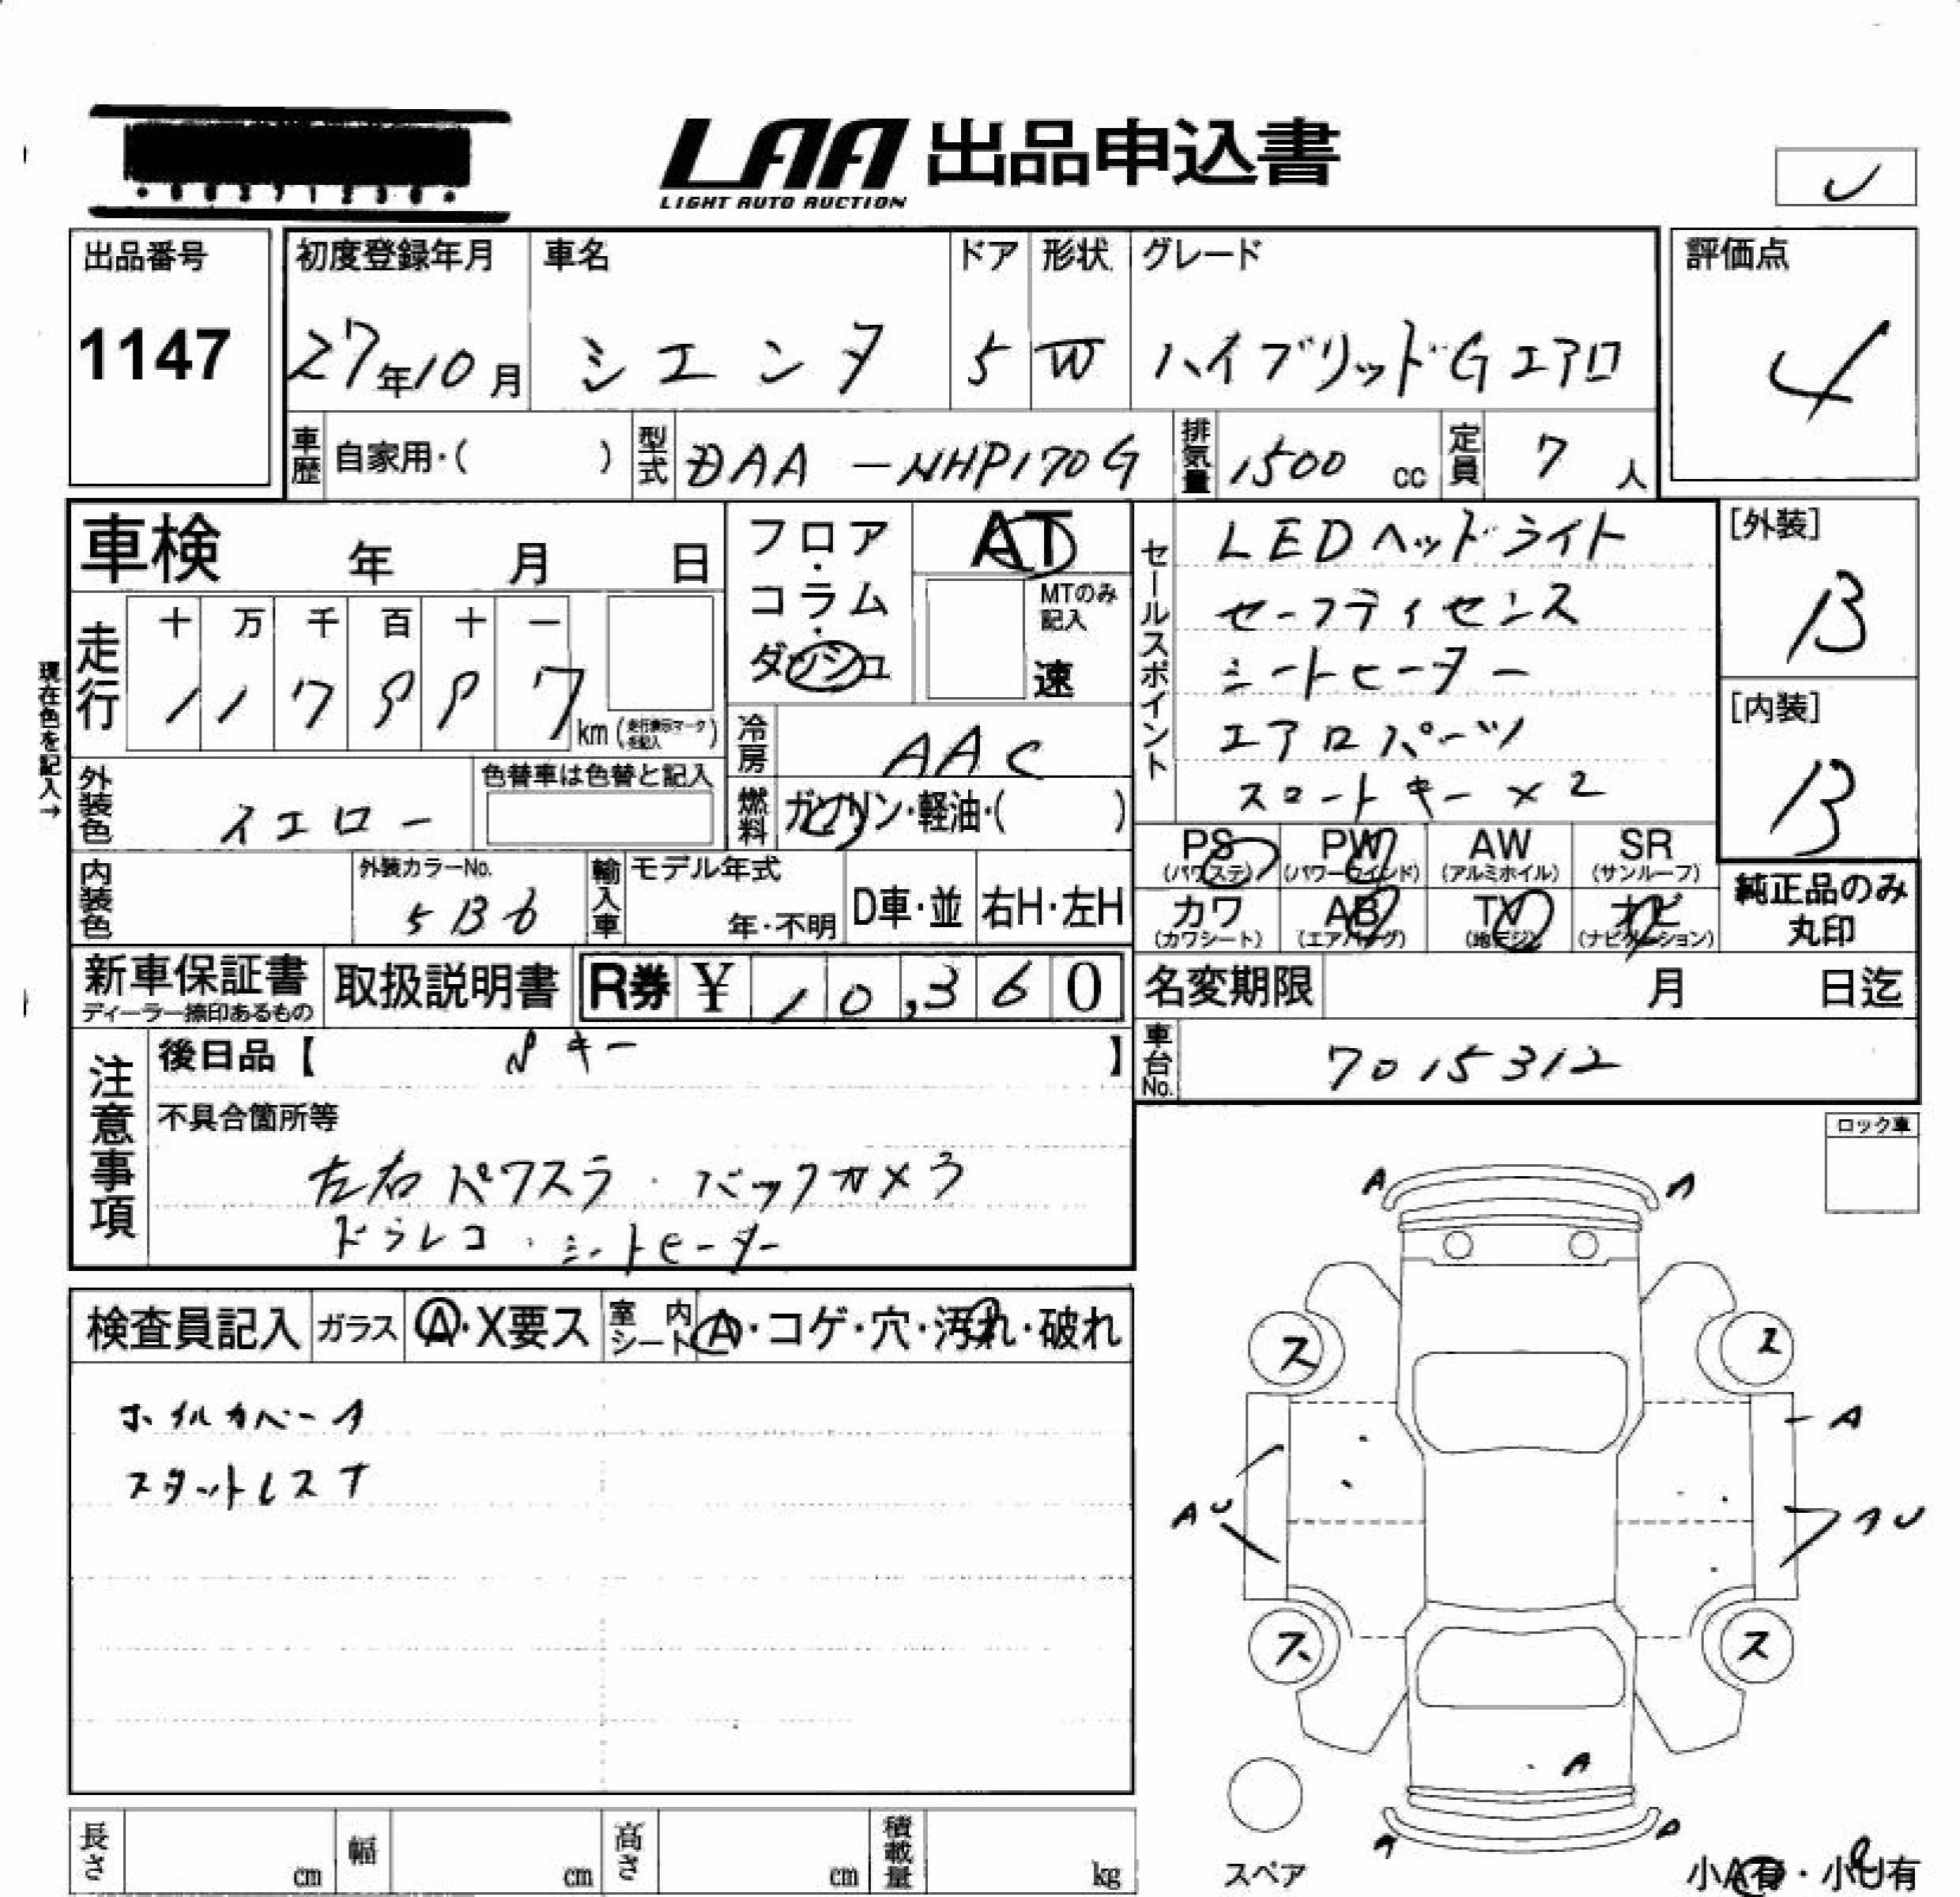 LAA 出品申込書
LIGHT AUTO AUCTION
出品番号
1147
初度登録年月
27年10月
車名
シエンタ
ドア
5
形状
W
グレード
ハイブリッドGエアロ
評価点
4
車歴 自家用・( )
型式 DAA-NHP170G
排気量 1500 cc
定員 7 人
車検 年 月 日
フロア・コラム・ダッシュ
AT
MTのみ記入
速
セールスポイント
LEDヘッドライト
セーフティセンス
シートヒーター
エアロパーツ
スロートキー×2
[外装]
B
[内装]
B
現在色を記入→
走行 十 万 千 百 十 一
km
冷房 AAC
燃料 ガソリン・軽油・( )
外装色 イエロー
色替車は色替と記入
内装色
外装カラーNo.
5B6
輸入車 モデル年式
年・不明
D車・並 右H・左H
PS (パワステ) PW (パワーウインド) AW (アルミホイル) SR (サンルーフ)
カワ (カワシート) AB (エアバッグ) TV (地デジ) ナビ (ナビゲーション)
純正品のみ丸印
新車保証書
ディーラー捺印あるもの
取扱説明書
R券 ¥ 10,360
名変期限 月 日迄
車台No. 7015312
注意事項
後日品【 Sキー 】
不具合箇所等
左右パワスラ・バックカメラ
ドラレコ・シートヒーター
ロック車
検査員記入 ガラス A・X要ス 室内シート A・コゲ・穴・汚れ・破れ
ホイルカバーA
スタットレスT
A A
ス ス
A
AU AU
ス ス
A
A A
スペア
小A有・小U有
長さ cm 幅 cm 高さ cm 積載量 kg